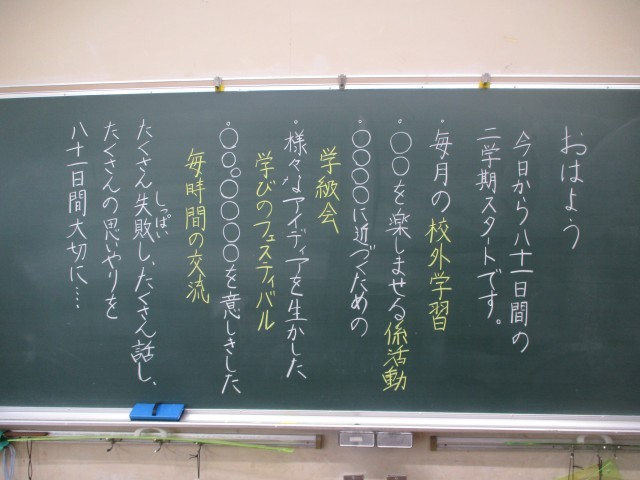 おはよう
今日から八十一日間の
二学期スタートです。
・毎月の校外学習
・〇〇を楽しませる係活動
・〇〇〇〇に近づくための
学級会
・様々なアイディアを生かした
学びのフェスティバル
・〇〇。〇〇〇〇を意しきした
毎時間の交流
たくさん失敗し、たくさん話し、
しっぱい
たくさんの思いやりを
八十一日間大切に…